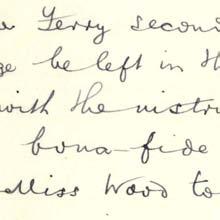 Ferry secon
be left in th
with the instru
bona-fide
Miss Wood to